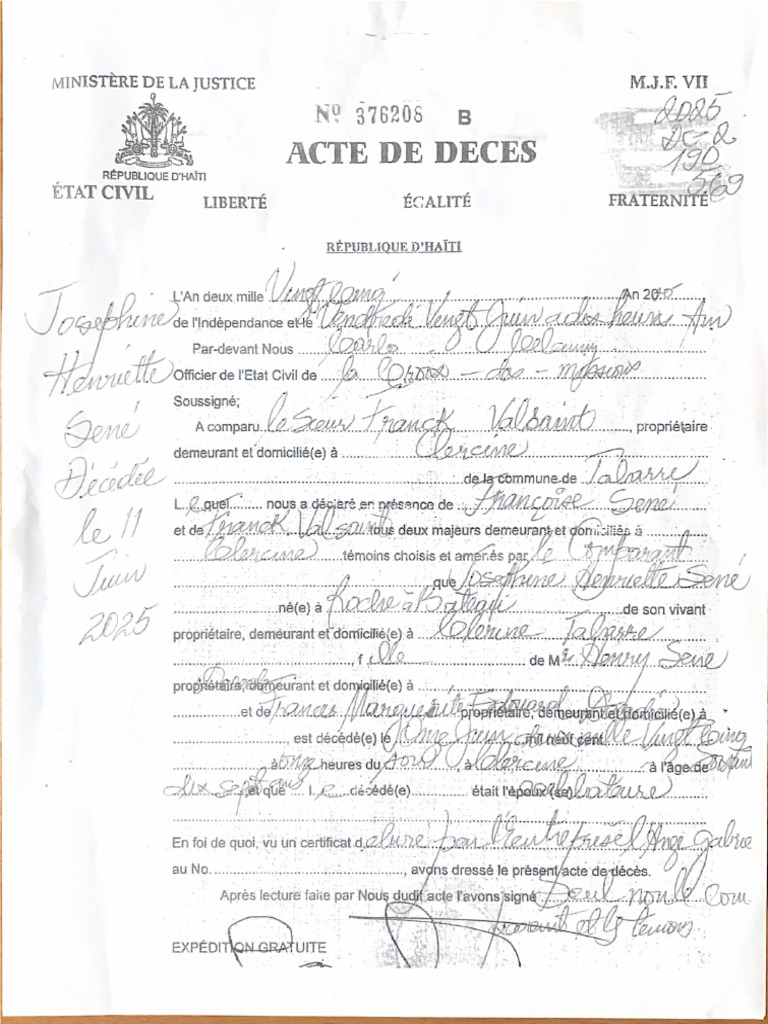 MINISTÈRE DE LA JUSTICE
M.J.F. VII
Nº 376206 B
2025
DC-2
190
569
ACTE DE DECES
RÉPUBLIQUE D'HAÏTI
ÉTAT CIVIL
LIBERTÉ ÉGALITÉ FRATERNITÉ
RÉPUBLIQUE D'HAÏTI
Josephine
Henriette
Sené
Décédée
le 11
Juin
2025
L'An deux mille Vingt Cinq An 20
de l'Indépendance et le Vendredi Vingt Juin a dos heurs Am
Par-devant Nous Carlo
Officier de l'Etat Civil de la Croos - das - missions
Soussigné;
A comparu le Sœur Franck Valsaint, propriétaire
demeurant et domicilié(e) à Clercine
de la commune de Tabarre
Le quel nous a déclaré en présence de Françoise Sené
et de Franck Valsaint tous deux majeurs demeurant et domiciliés à
Clercine témoins choisis et amenés par le Comparant
que Josephine Henriette Sené
né(e) à Roche à Bateau de son vivant
propriétaire, demeurant et domicilié(e) à Clercine Tabarre
, fille de Mr Henry Sene
propriétaire, demeurant et domicilié(e) à
et de Frances Marguerite Edouard propriétaire, demeurant et domicilié(e) à
, est décédé(e) le Onze Juin mil neuf cent Vingt Cinq
à onze heures du soir, à Clercine à l'âge de
dix sept ans et que le décédé(e) était l'époux (se) celibataire
En foi de quoi, vu un certificat délivré par l'Entreprise l'Ange Gabrie
au No., avons dressé le présent acte de décès.
Après lecture faite par Nous dudit acte l'avons signé Seul nonle com
parant et ls temoins
EXPÉDITION GRATUITE